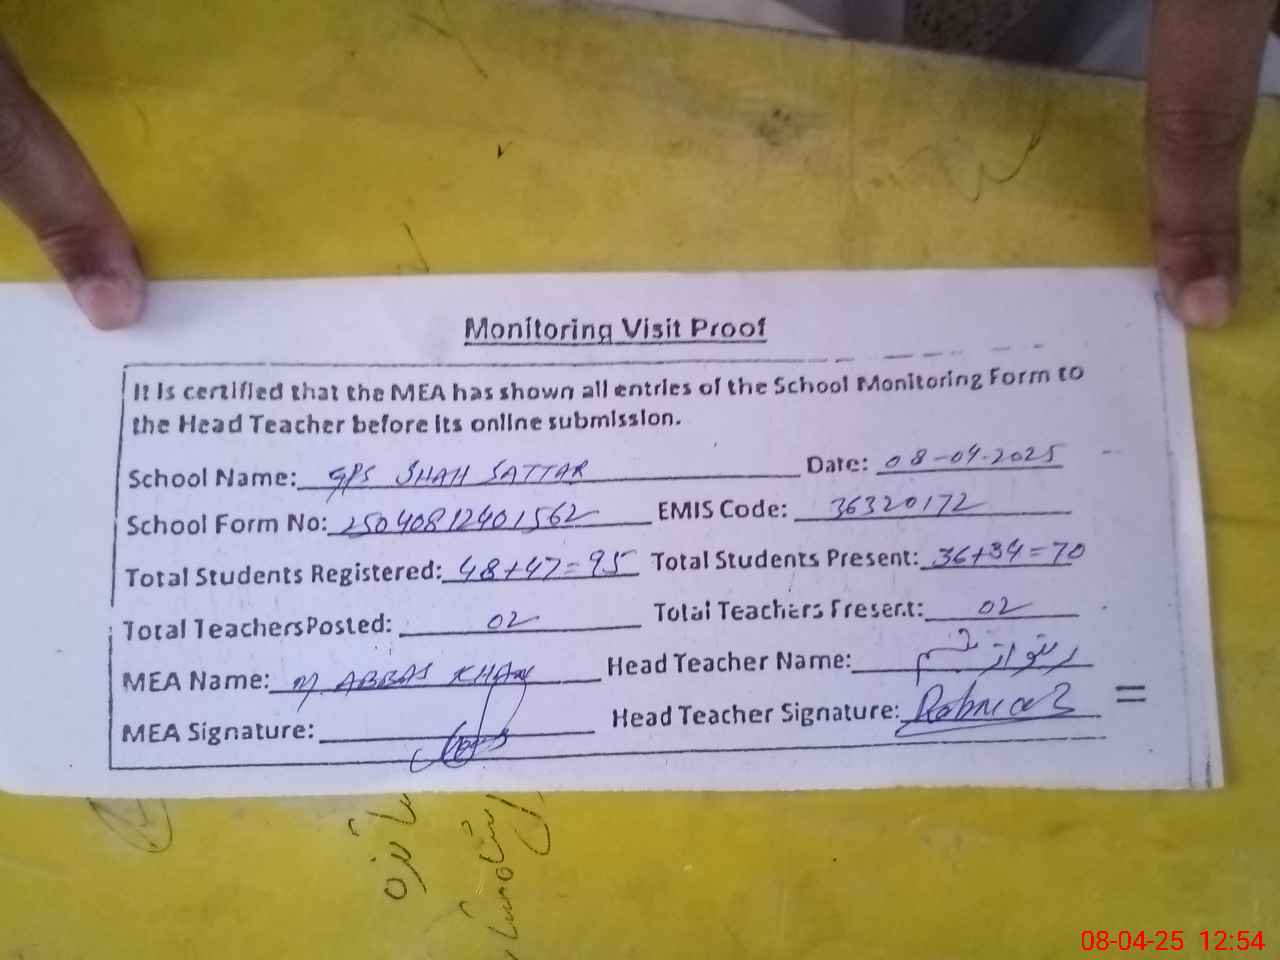 Monitoring Visit Proof
It is certified that the MEA has shown all entries of the School Monitoring Form to
the Head Teacher before its online submission.
School Name: GPS SHAH SATTAR Date: 08-04-2025
School Form No: 25040812401562 EMIS Code: 36320172
Total Students Registered: 48+47=95 Total Students Present: 36+34=70
Total Teachers Posted: 02 Total Teachers Present: 02
MEA Name: M ABBAS KHAN Head Teacher Name:
MEA Signature: Head Teacher Signature:
08-04-25 12:54